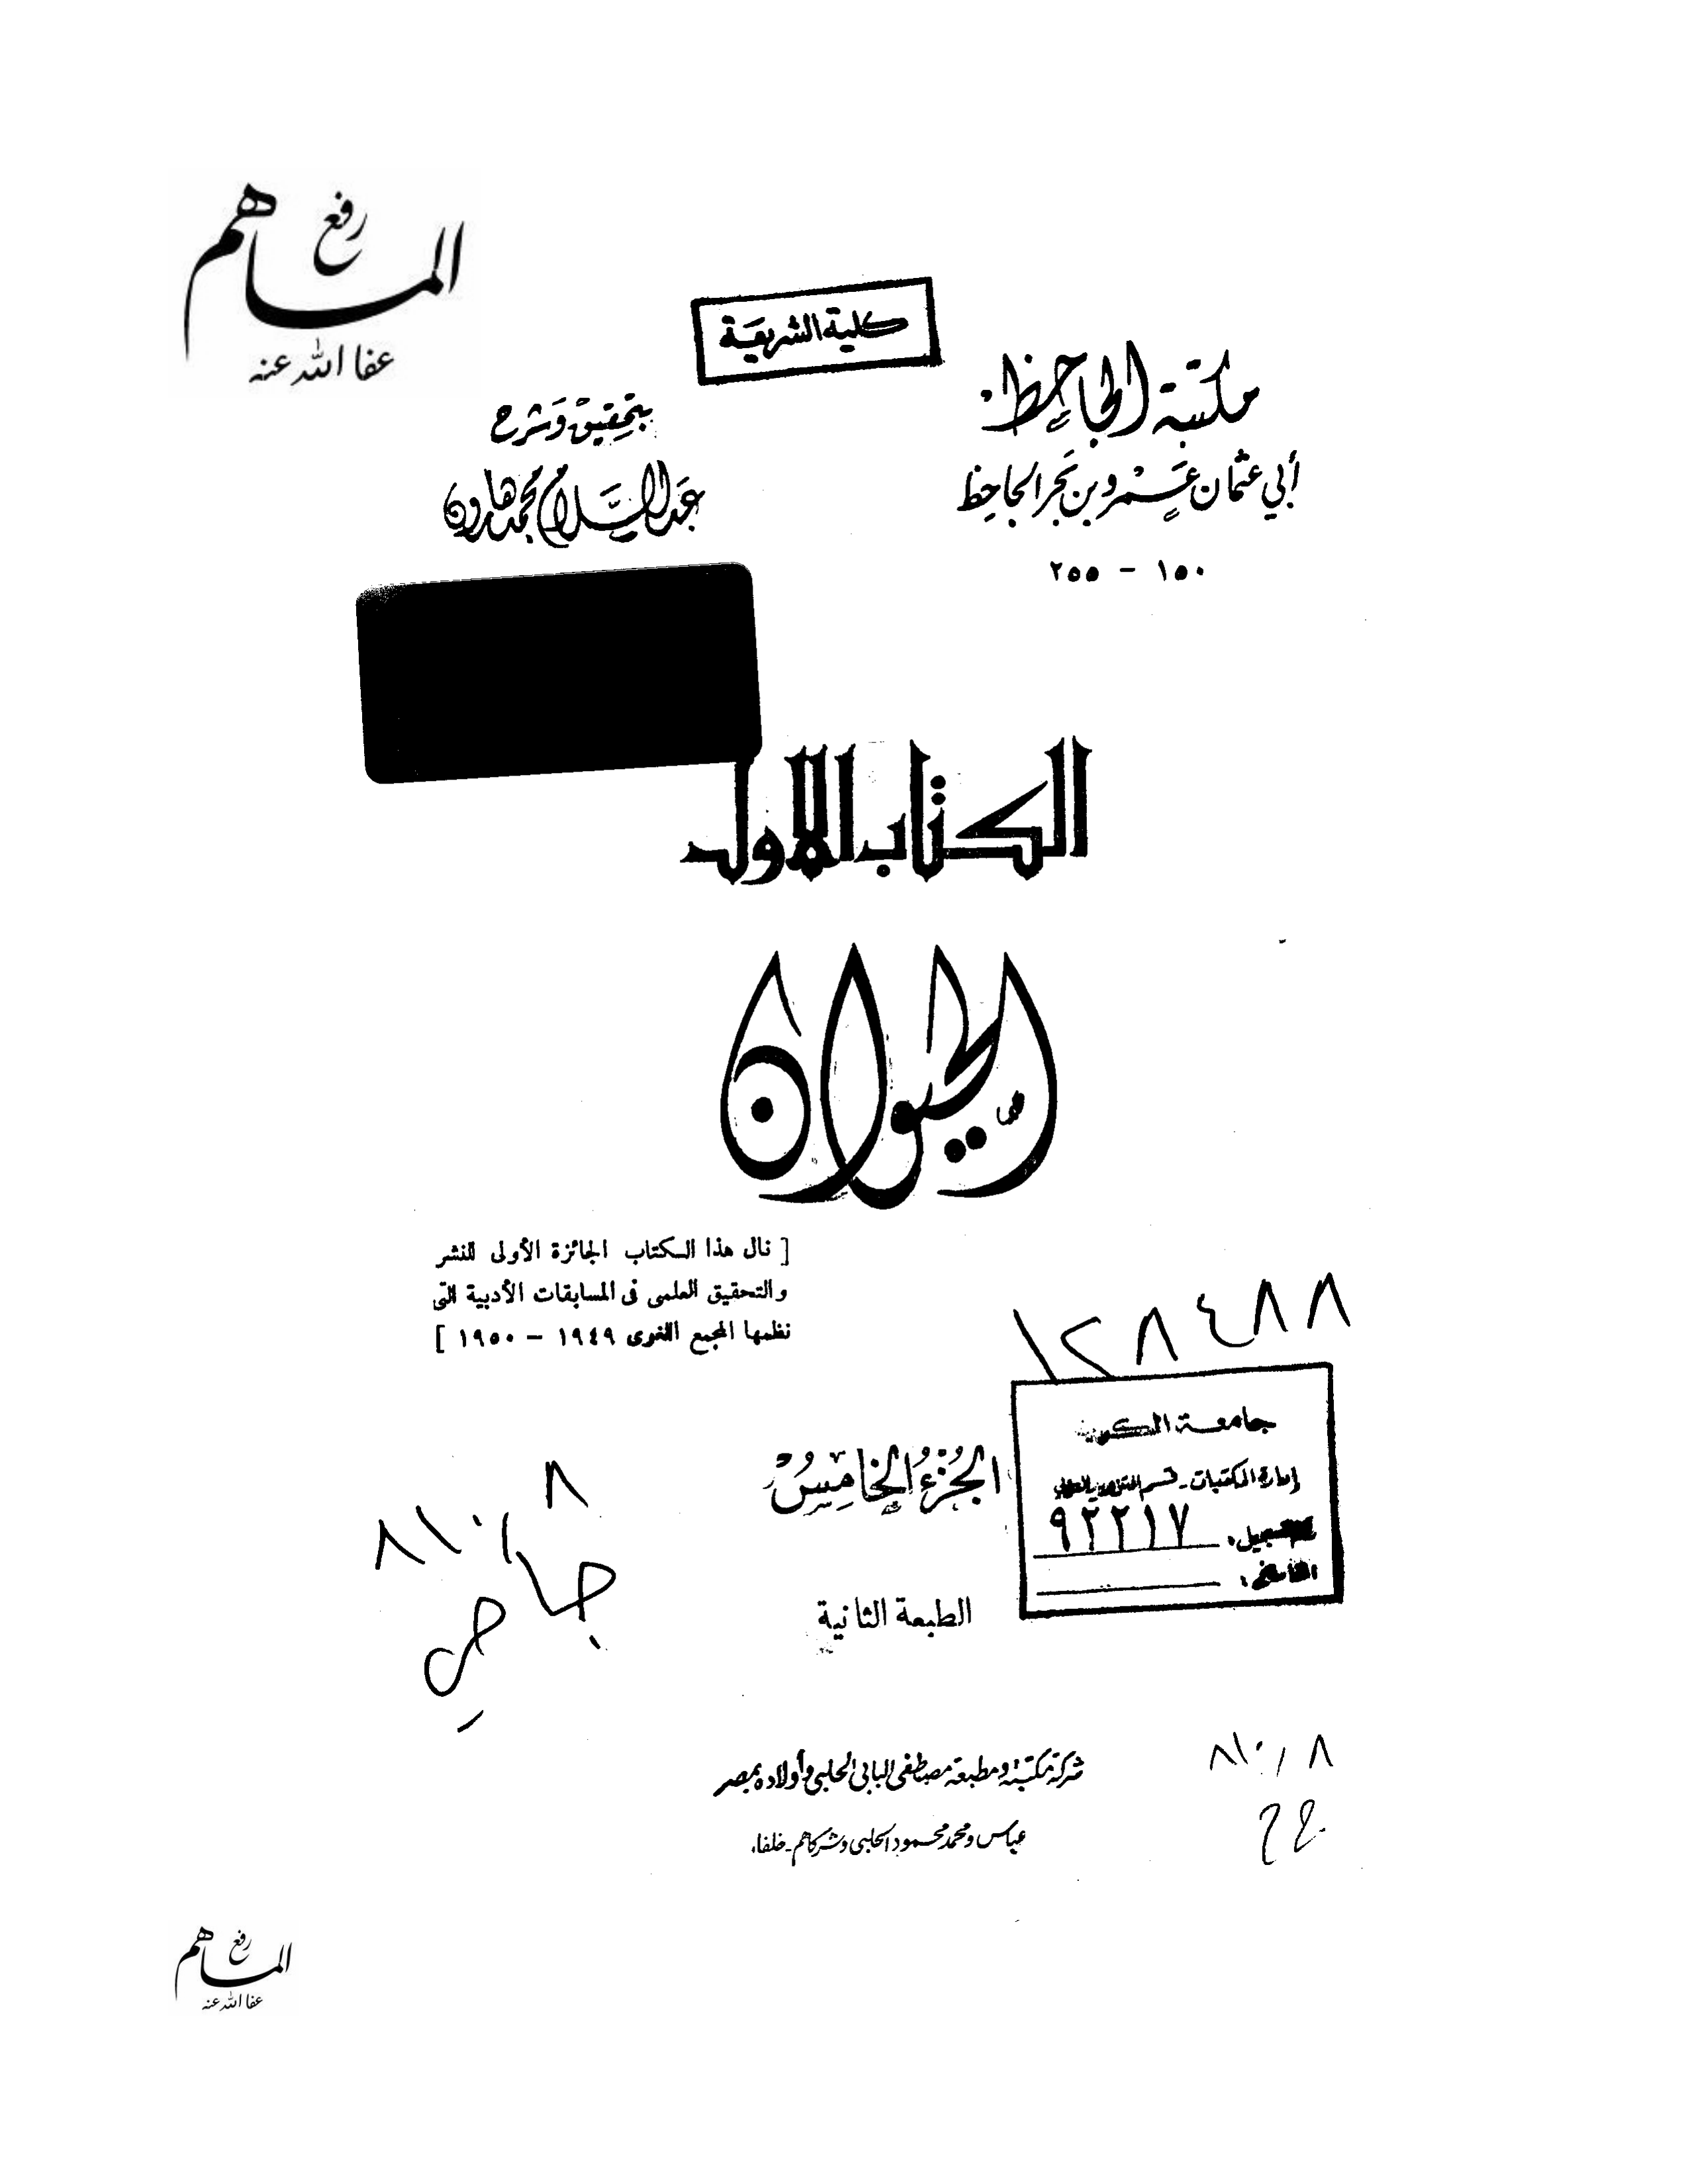 رفع
المساهم
عفا الله عنه
كلية الشريعة
مكتبة الجاحظ
أبي عثمان عمرو بن بحر الجاحظ
١٥٠ - ٢٥٥
بتحقيق وشرح
عبد السلام محمد هارون
الكتاب الأول
الحيوان
[ نال هذا الكتاب الجائزة الأولى للنشر
والتحقيق العلمى فى المسابقات الأدبية التى
نظمها المجمع اللغوى ١٩٤٩ – ١٩٥٠ ]
١٢٨٤٨٨
جامعة الكويت
إدارة المكتبات - قسم
التسجيل : ٩٢٢١٧
الجزء الخامس
٨١٠٫٨
جا
الطبعة الثانية
شركة مكتبة ومطبعة مصطفى البابى الحلبى وأولاده بمصر
عباس ومحمد محمود الحلبى وشركاهم - خلفاء
٨١٠٫٨
رفع
المساهم
عفا الله عنه